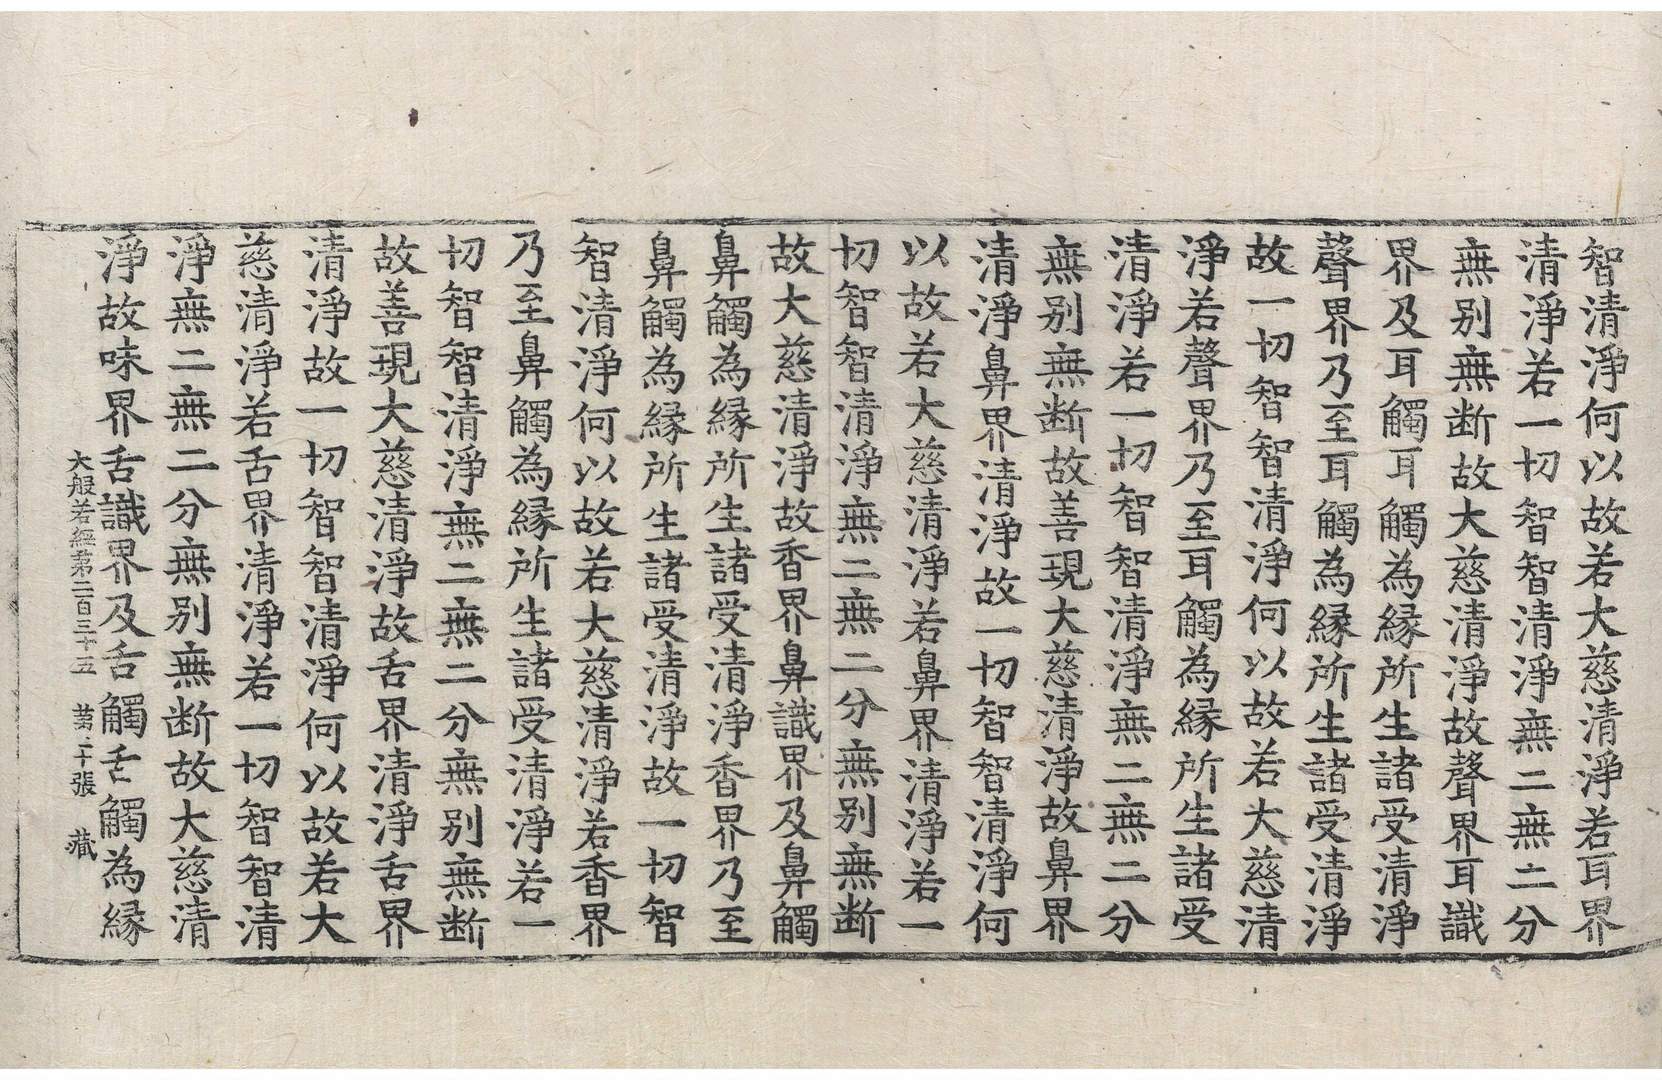 智清淨何以故若大慈清淨若耳界
清淨若一切智智清淨無二無二分
無别無断故大慈清淨故聲界耳識
界及耳觸耳觸為縁所生諸受清淨
聲界乃至耳觸為縁所生諸受清淨
故一切智智清淨何以故若大慈清
淨若聲界乃至耳觸為縁所生諸受
清淨若一切智智清淨無二無二分
無别無断故善現大慈清淨故鼻界
清淨鼻界清淨故一切智智清淨何
以故若大慈清淨若鼻界清淨若一
切智智清淨無二無二分無别無断
故大慈清淨故香界鼻識界及鼻觸
鼻觸為縁所生諸受清淨香界乃至
鼻觸為縁所生諸受清淨故一切智
智清淨何以故若大慈清淨若香界
乃至鼻觸為縁所生諸受清淨若一
切智智清淨無二無二分無别無断
故善現大慈清淨故舌界清淨舌界
清淨故一切智智清淨何以故若大
慈清淨若舌界清淨若一切智智清
淨無二無二分無别無断故大慈清
淨故味界舌識界及舌觸舌觸為縁
大般若經苐二百三十五 苐二十張 藏